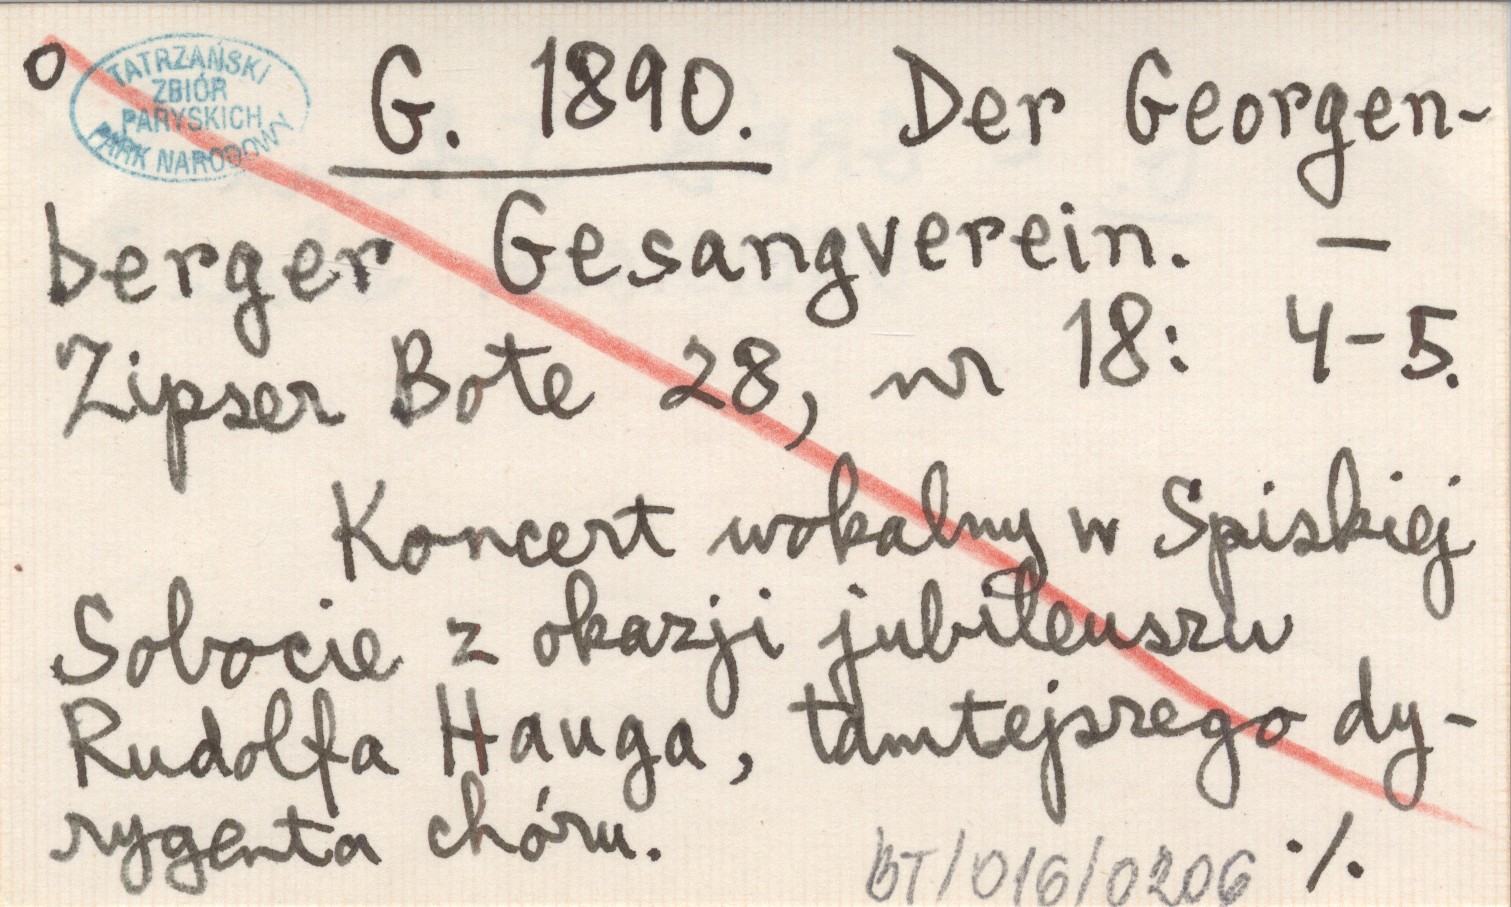 o
TATRZAŃSKI
ZBIÓR
PARYSKICH
PARK NARODOWY
G. 1890. Der Georgen-
berger Gesangverein. —
Zipser Bote 28, nr 18: 4-5.
Koncert wokalny w Spiskiej
Sobocie z okazji jubileuszu
Rudolfa Hauga, tamtejszego dy-
rygenta chóru.
BT/016/0206 ./.